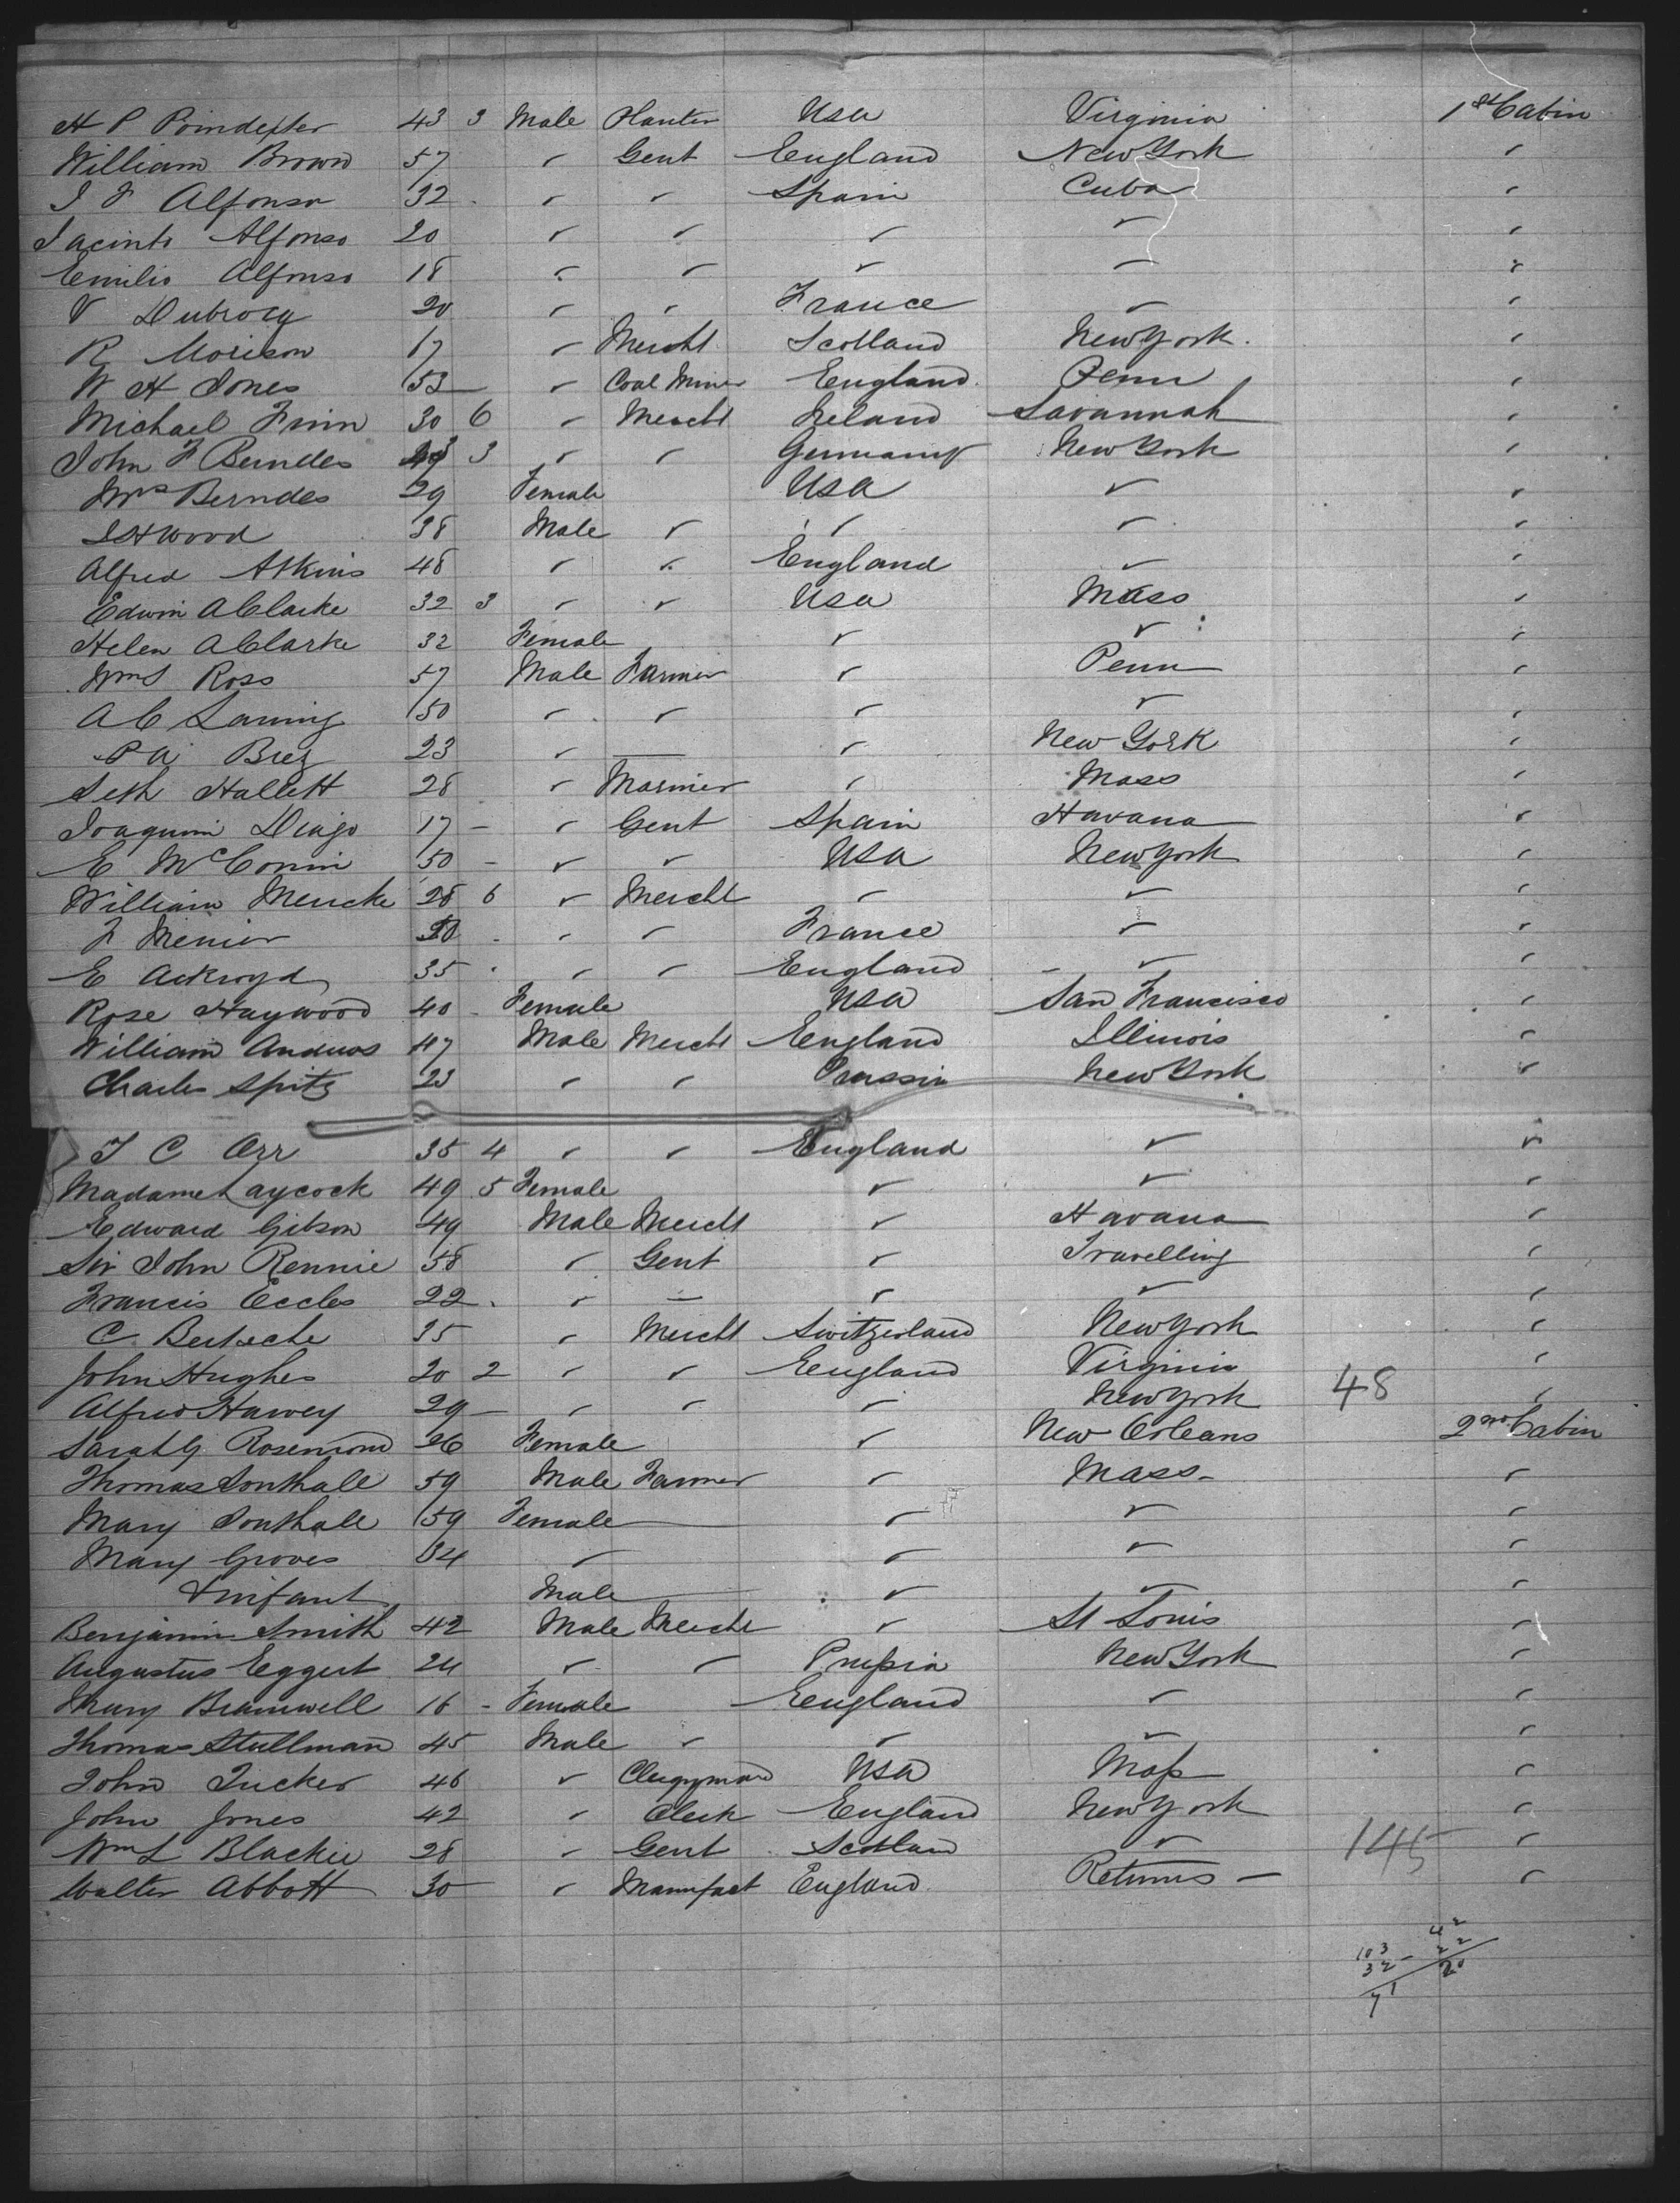 H P Poindexter 43 3 Male Planter USA Virginia 1st Cabin
William Brown 57 ✓ Gent England New York ✓
J F Alfonso 32 ✓ ✓ Spain Cuba ✓
Jacinto Alfonso 20 ✓ ✓ ✓ ✓ ✓
Emilio Alfonso 18 ✓ ✓ ✓ ✓ ✓
V Dubrocq 20 ✓ ✓ France ✓ ✓
R Morison 17 ✓ Mercht Scotland New York ✓
W H Jones 53 ✓ Coal Miner England Penn ✓
Michael Finn 30 6 ✓ Mercht Ireland Savannah ✓
John F Berndes 3 ✓ ✓ Germany New York ✓
Mrs Berndes 29 Female USA ✓ ✓
Wood 38 Male ✓ ✓ ✓ ✓
Alfred Atkins 48 ✓ ✓ England ✓ ✓
Edwin A Clarke 32 3 ✓ ✓ USA Mass ✓
Helen A Clarke 32 Female ✓ ✓ ✓
Wm S Ross 57 Male Farmer ✓ Penn ✓
A C Laning 50 ✓ ✓ ✓ ✓ ✓
P A Brez 23 ✓ — ✓ New York ✓
Seth Hallett 28 ✓ Mariner ✓ Mass ✓
Joaquin Diago 17 ✓ Gent Spain Havana ✓
E McConin 50 ✓ ✓ USA New York ✓
William Mencke 28 6 ✓ Mercht ✓ ✓ ✓
F Menier ✓ ✓ France ✓ ✓
E Ackroyd 35 ✓ ✓ England ✓ ✓
Rose Haywood 40 Female USA San Francisco ✓
William Andrews 47 Male Mercht England Illinois ✓
Charles Spitz 23 ✓ ✓ Prussia New York ✓
T C Orr 35 4 ✓ ✓ England ✓ ✓
Madame Laycock 49 5 Female ✓ ✓ ✓
Edward Gibson 49 Male Mercht ✓ Havana ✓
Sir John Rennie 58 ✓ Gent ✓ Travelling ✓
Francis Eccles 22 ✓ — ✓ ✓ ✓
C Bertsche 35 ✓ Mercht Switzerland New York ✓
John Hughes 20 2 ✓ ✓ England Virginia ✓
Alfred Harvey 29 ✓ ✓ ✓ New York 48 ✓
Sarah G Rosemond 26 Female ✓ New Orleans 2nd Cabin
Thomas Southall 59 Male Farmer ✓ Mass ✓
Mary Southall 59 Female ✓ ✓ ✓
Mary Groves 34 ✓ ✓ ✓ ✓
& infant Male ✓ ✓ ✓
Benjamin Smith 42 Male Mercht ✓ St Louis ✓
Augustus Eggert 24 ✓ ✓ Prussia New York ✓
Mary Bramwell 16 Female England ✓ ✓
Thomas Stullman 45 Male ✓ ✓ ✓ ✓
John Tucker 46 ✓ Clergyman USA Mass ✓
John Jones 42 ✓ Clerk England New York ✓
Wm L Blackie 28 ✓ Gent Scotland ✓ 145 ✓
Walter Abbott 30 ✓ Manufact England Returns ✓
103 42
32 22
71 20